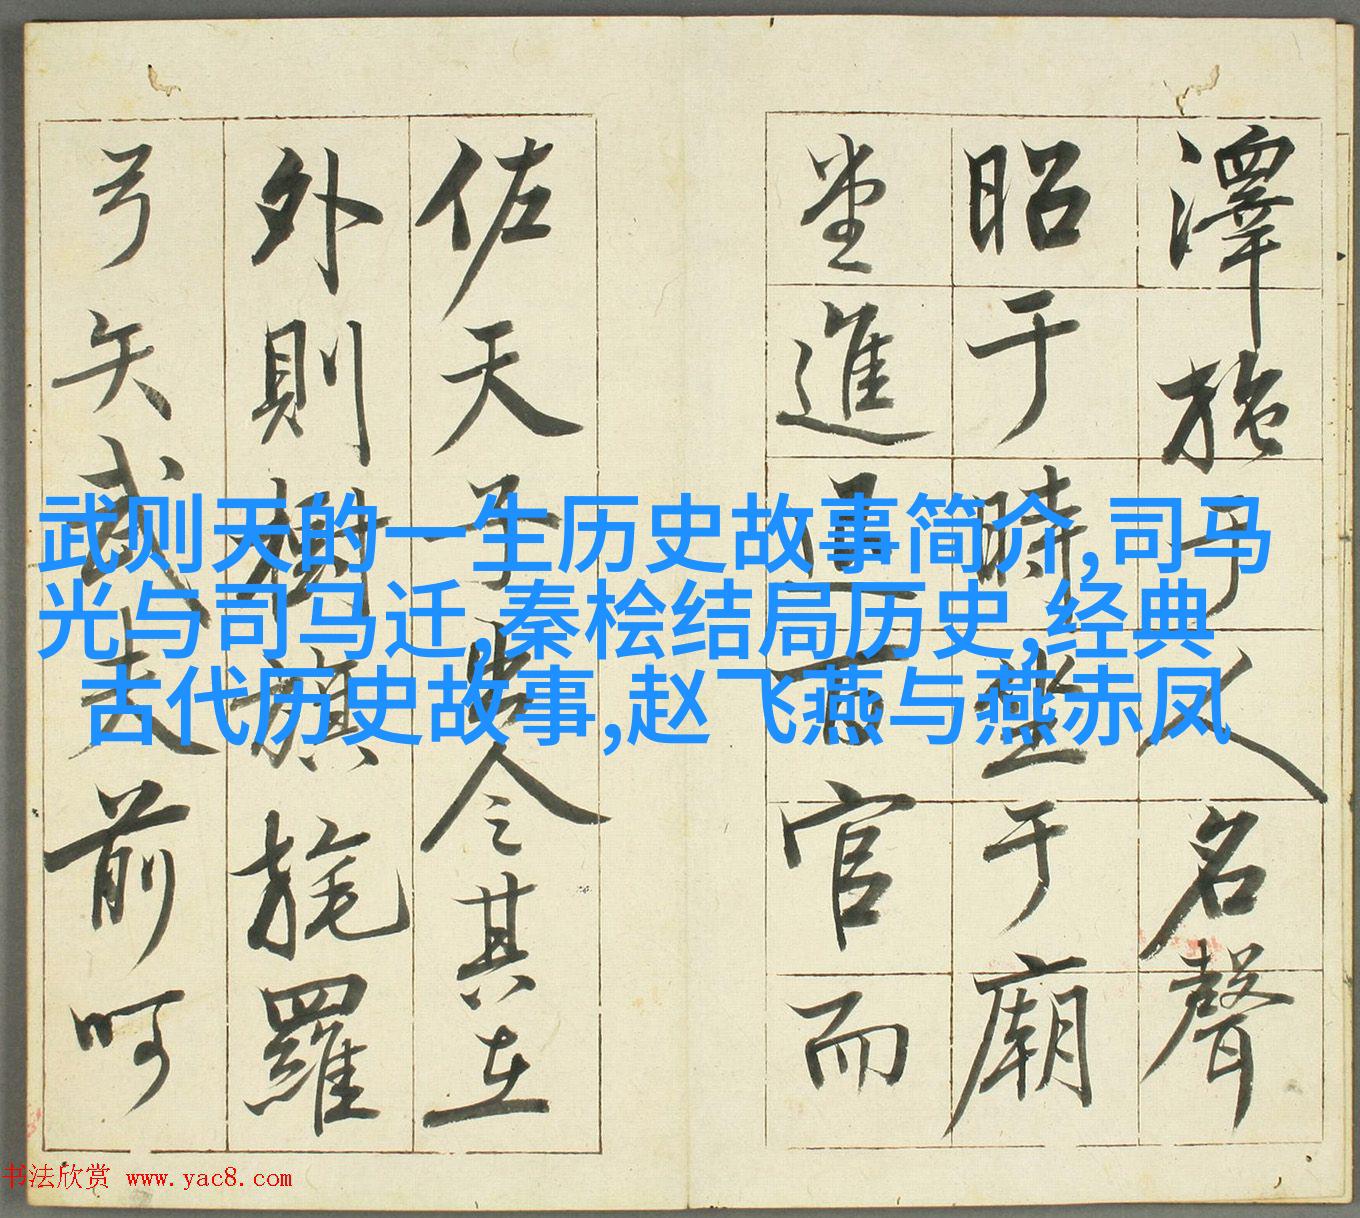 澤施于人名聲
昭于時坐于廟
堂進退百官而
佐天子出令其在
外則樹旗旄羅
弓矢武夫前呵
武则天的一生历史故事简介,司马
光与司马迁,秦桧结局历史,经典
古代历史故事,赵飞燕与燕赤凤
书法欣赏 www.yac8.com